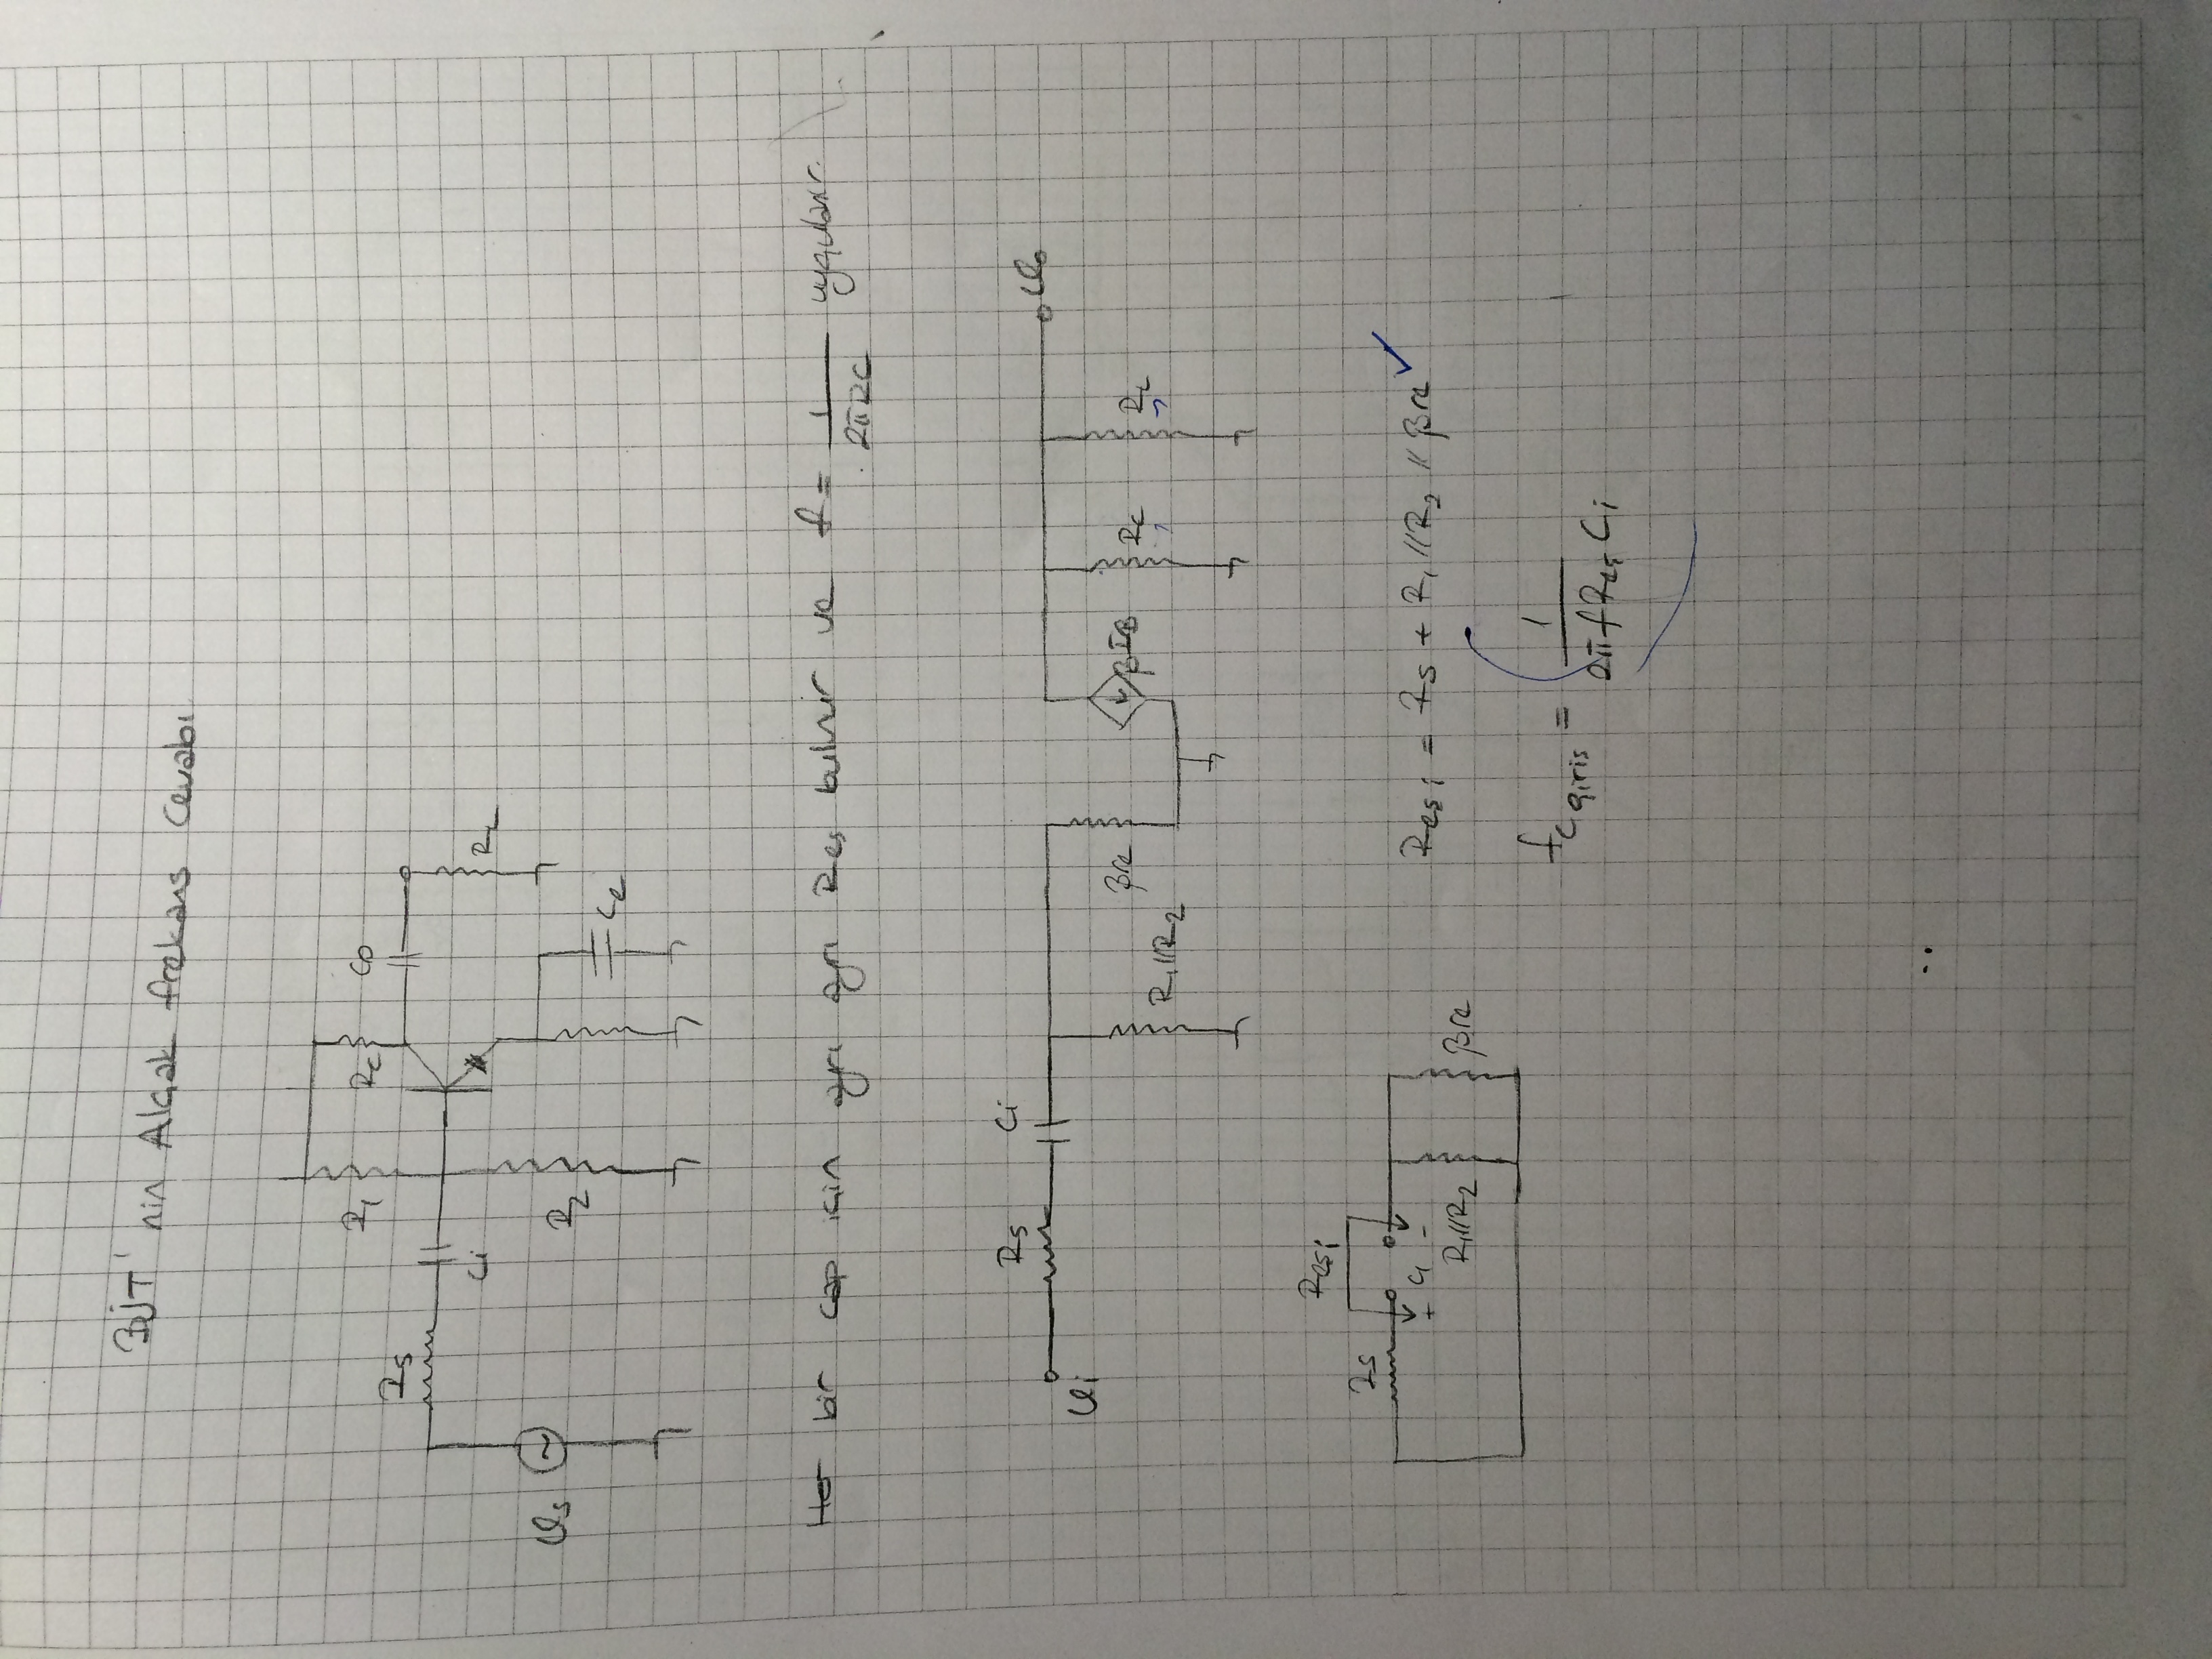 BJT'nin Alçak frekans Cevabı
R1 Rc Co
Rs
Ci RL
Vs R2 Ce
Her bir cap için ayrı ayrı Reş bulunur ve f = 1/2πRC uygulanır.
Rs Ci Vo
Vi
βre βIB Rc RL
R1//R2
Reşi
Rs
+ Ci -
R1//R2 βre
Reşi = Rs + R1//R2 // βre ✓
fc giriş = 1/2πfReş Ci